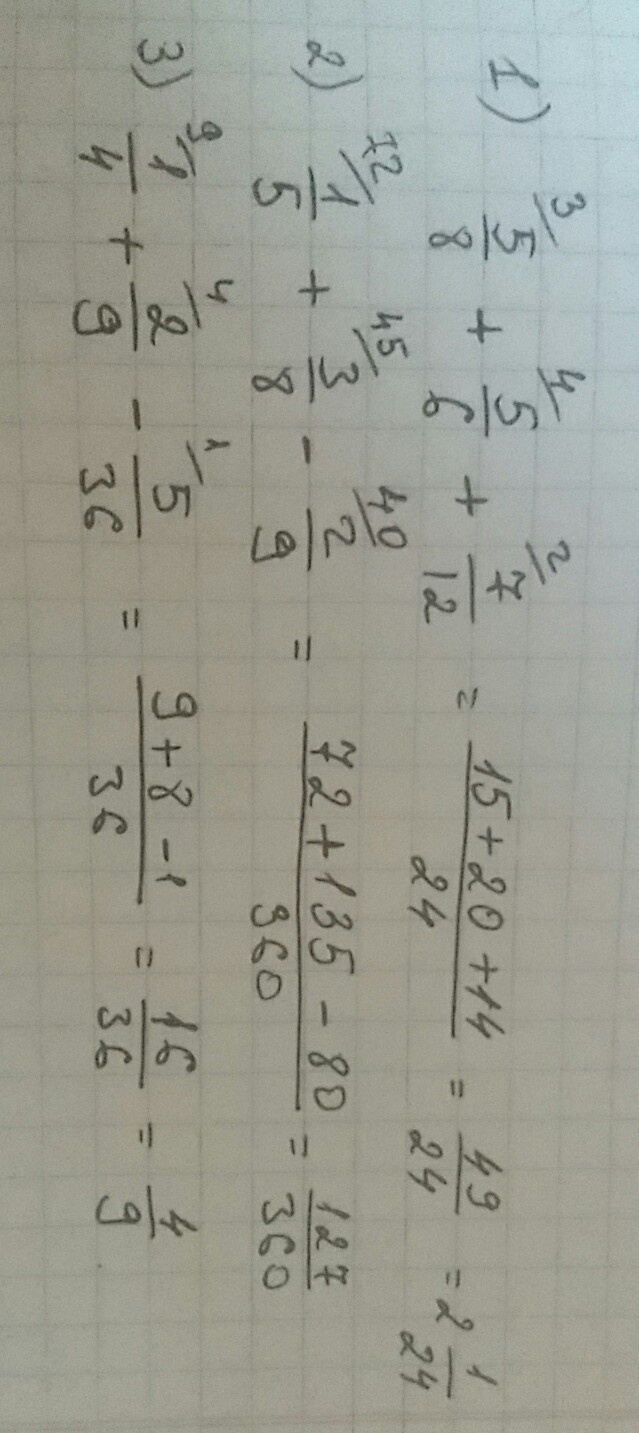 1) 3/ 5/8 + 4/ 5/6 + 2/ 7/12 = (15+20+14)/24 = 49/24 = 2 1/24
2) 72/ 1/5 + 45/ 3/8 - 40/ 2/9 = (72+135-80)/360 = 127/360
3) 9/ 1/4 + 4/ 2/9 - 1/ 5/36 = (9+8-1)/36 = 16/36 = 4/9